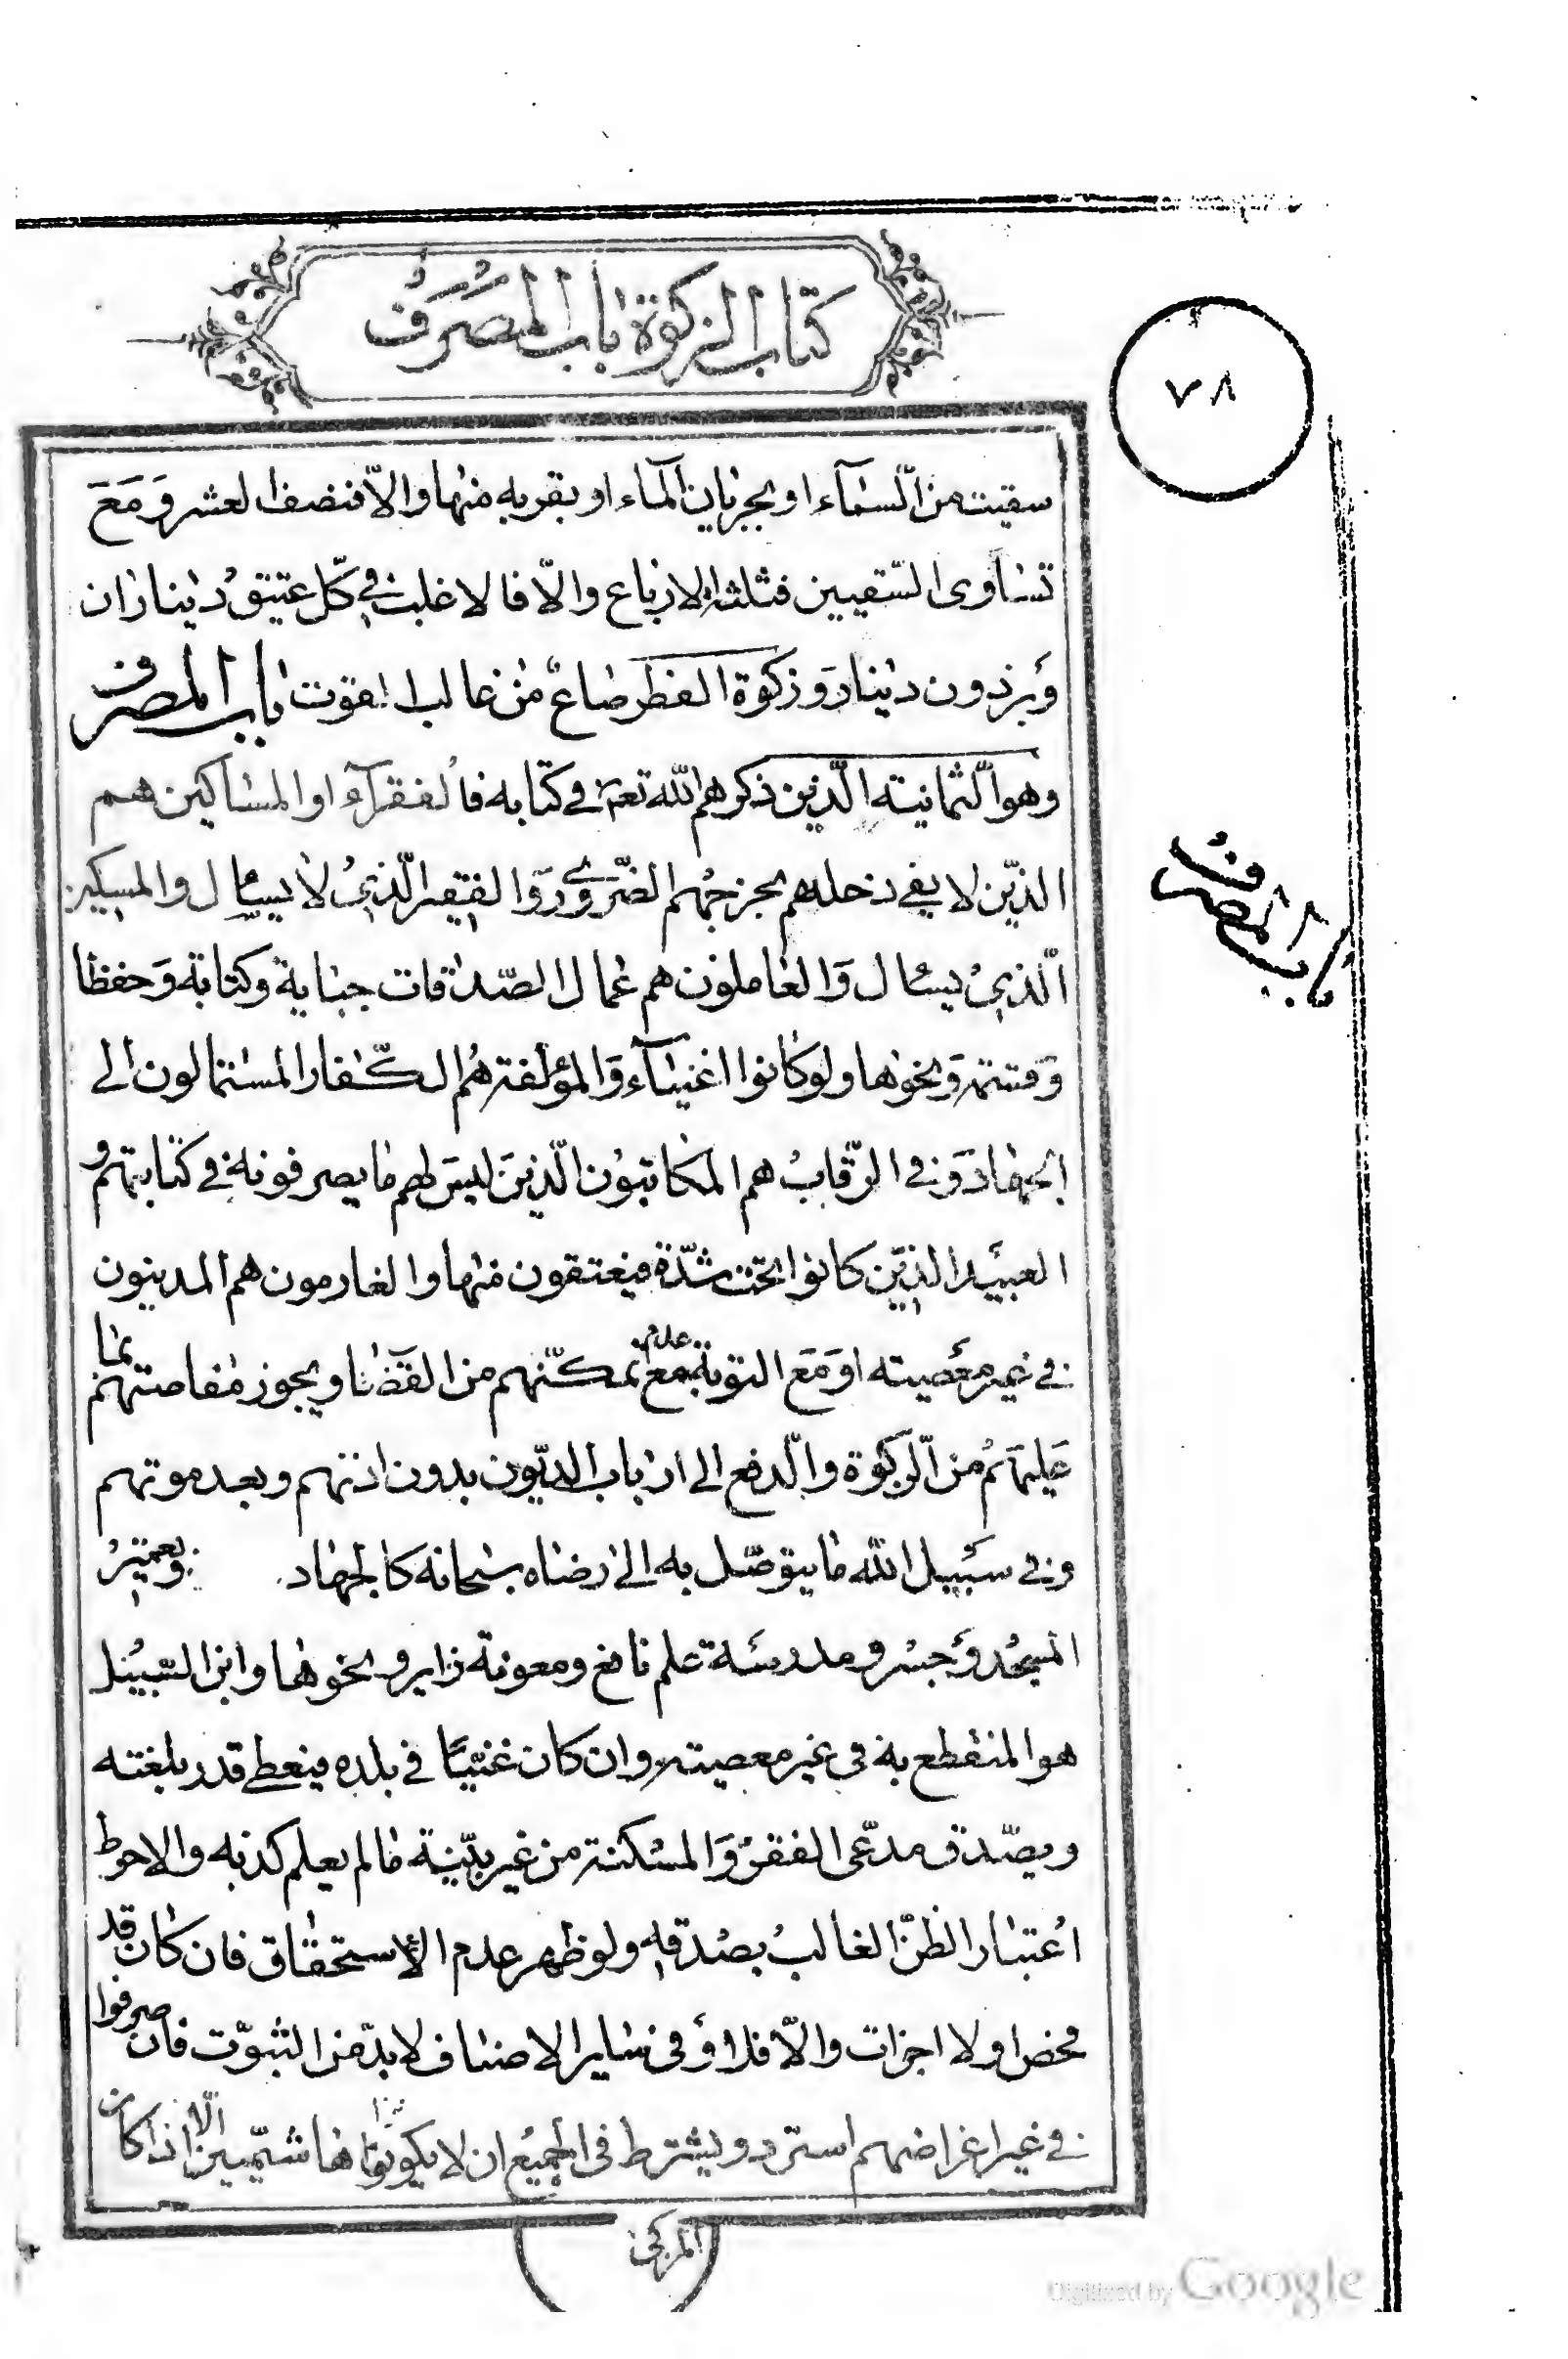 كتاب الزكوة باب المصرف
٧٨
سقيت من السّمآء او بجريان المآء او بقربه منها والّا فنصف العشر وَمَعَ
تساوى السّقيين فثلثة الارباع والّا فالاغلب وفي كلّ عتيق ديناران
وَبرذون دينار وَزكوة الفطر صاعٌ من غالب القوت باب المصرف
وهو الثمانية الّذين ذكرهم اللّه تعۤ في كتابه فالفقرآء او المساكين هم
الذّين لا يفي دخلهم بخرجهم الضّروري وَالفقير الّذي لا يسئال والمسكين
الّذي يسئال وَالعاملون هم عمال الصّداقات جباية وكتابة وَحفظا
وَقسمة وَنحوها ولو كانوا اغنيآء وَالمؤلفة هُم الكّفار المستمالون الى
الجهاد وَفي الرّقاب هم المكاتبون الّذينَ ليسَ لهم ما يصرفونه في كتابتهم و
العبيد الذّين كانوا تحت شدّة فيعتقون منها والغارمون هم المدينون
في غير معصيته او مَع التوبة مع عدم تمكّنهم من القضا ويجوز مقاصتهم بما
عَليهَم من الّزكوة والّدفع الى ارباب الديّون بدون اذنهم وبعد موتهم
وفي سبيل اللّه ما يتوصّل به الى رضاه سبحانه كالجهاد وتعمير
المسجد وَجسر و مدرسة علم نافع ومعونة زاير و نحوها وابن السّبيل
هو المنقطع به في غير معصيته وان كان غنيّا في بلده فيعطى قدر بلغته
ويصّدق مدّعى الفقر وَالمسكنة من غير بيّنة ما لم يعلم كذبه والاحوط
اعتبار الظنّ الغالب بصدقه ولو ظهر عدم الاستحقاق فان كان قد
فحص اولا اجزات والّا فلا وَفى ساير الاصناف لا بدّ من الثبوت فان صرفوا
في غير اغراضهم استرد ويشترط فى الجميع ان لا يكونوا هاشميّين الّا اذا كان
المزكى
باب المصرف
Digitized by Google